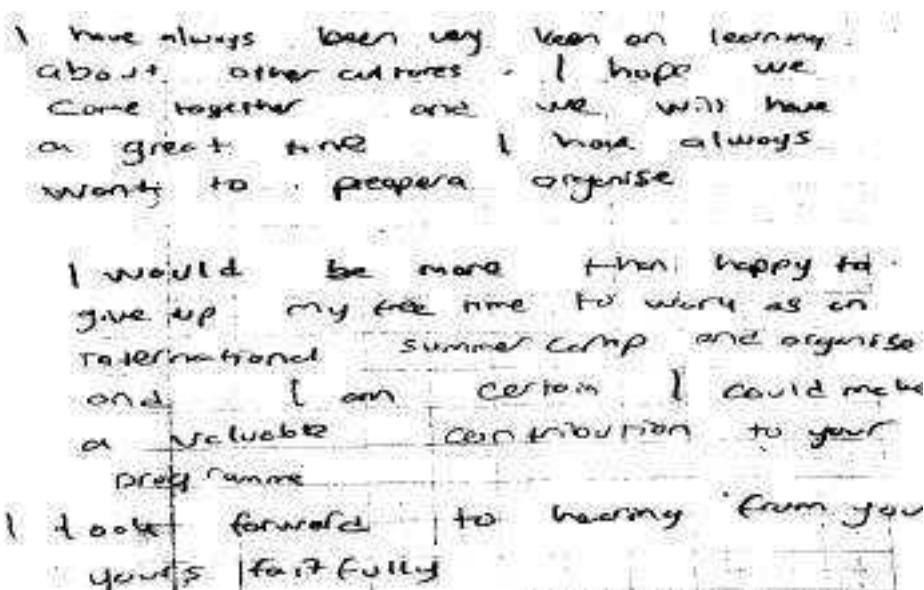 I have always been very keen on learning
about other cultures. I hope we
Come together and we will have
a great time I have always
want to preapera organise
I would be more than happy to
give up my free time to work as an
International summer camp and organise
and I am certain I could make
a valuable contribution to your
programme
I look forward to hearing from you
yours faitfully